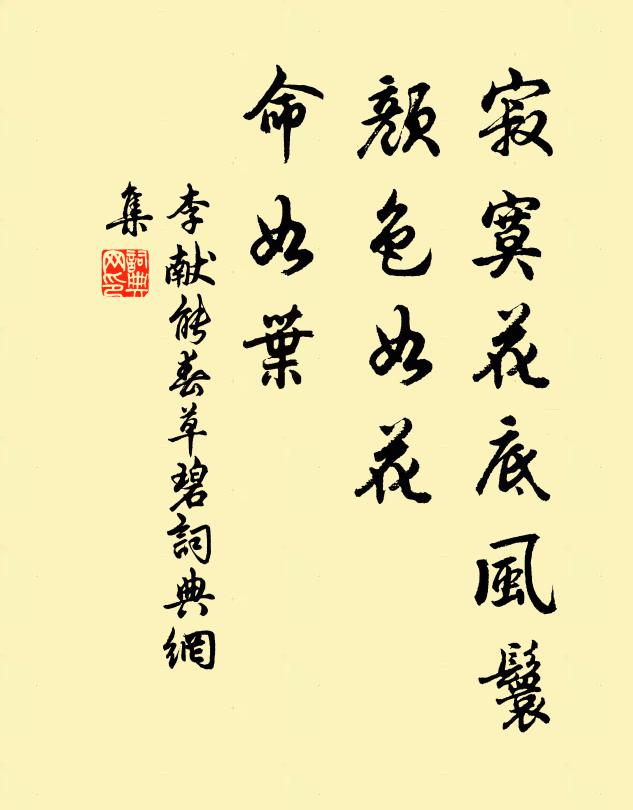 寂寞花底風鬟
顏色如花
命如葉
李献能春草碧詞典網
集
詞典网印